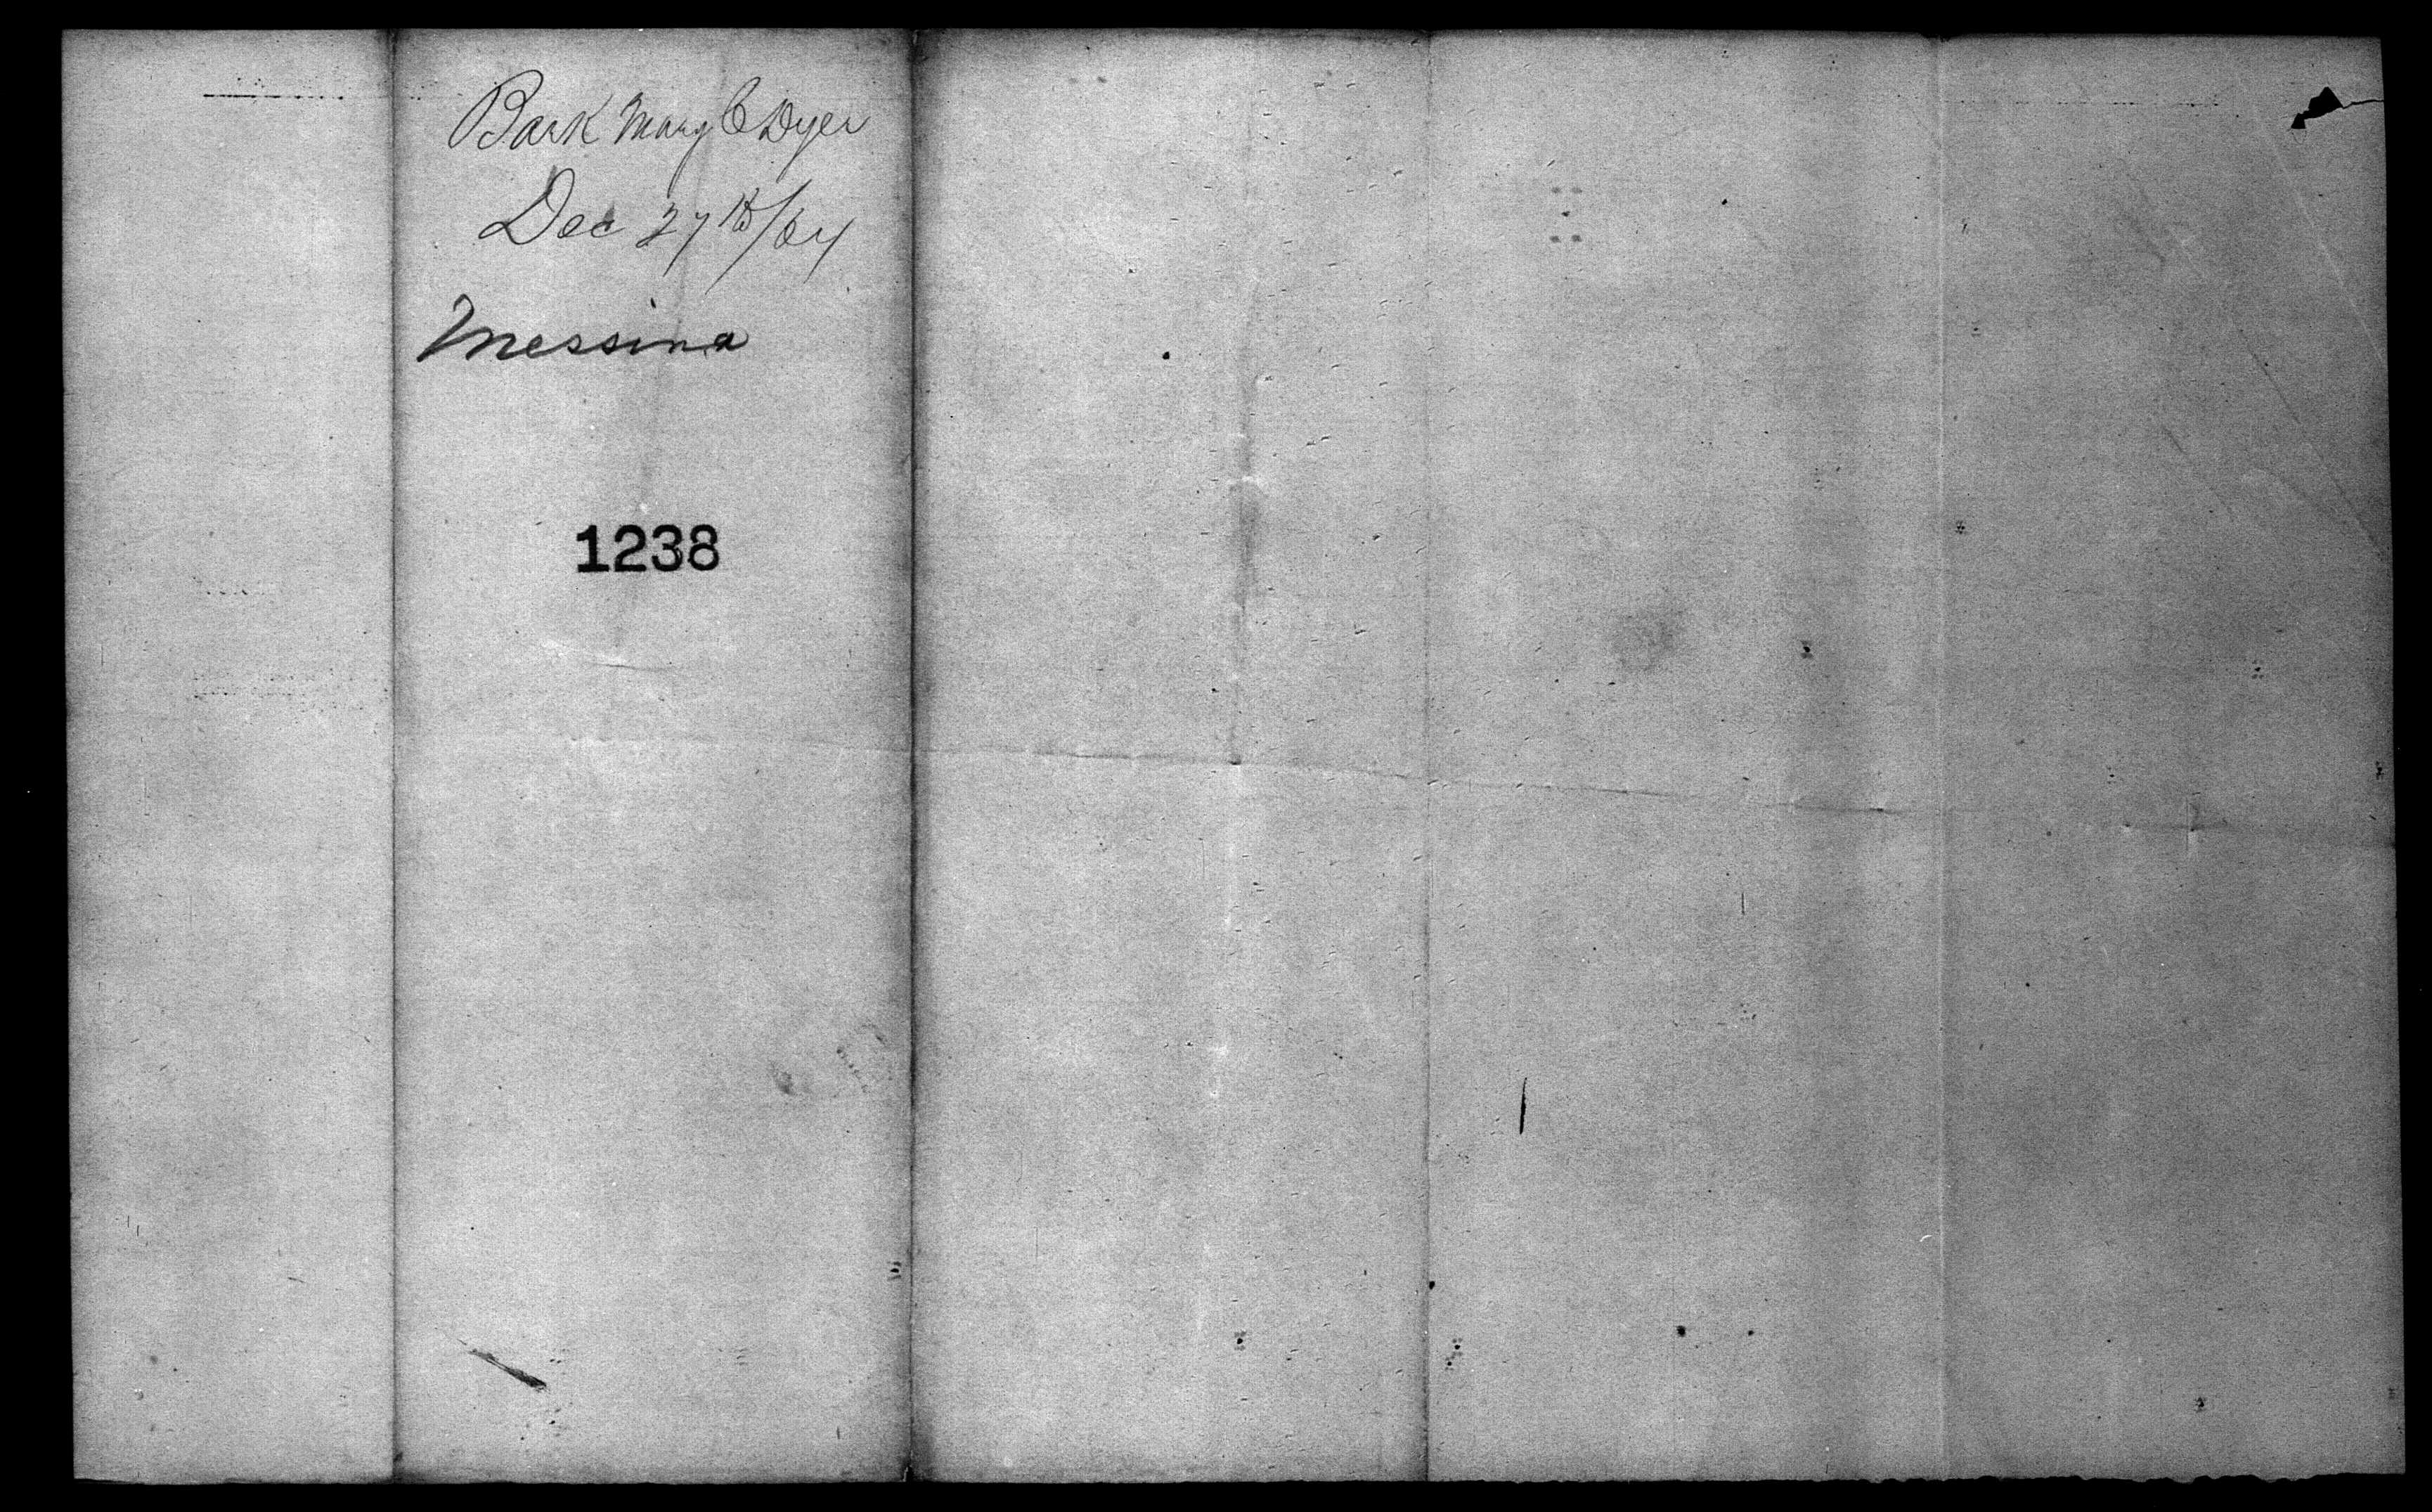 Bark Mary C Dyer
Dec 27th/64
Messina
1238